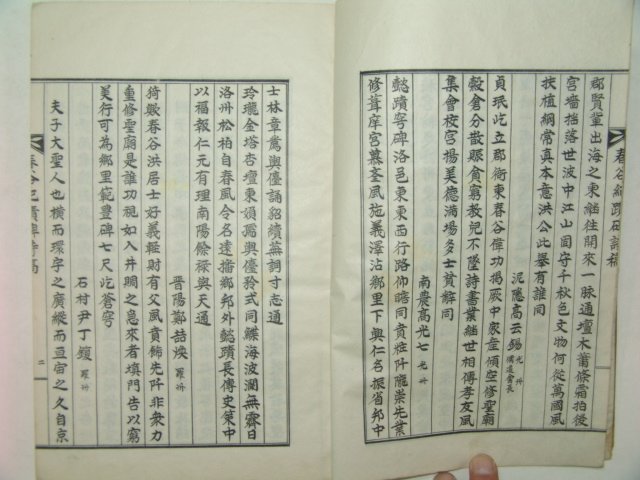 郡賢輩出海之東繼往開來一脉通壇木蕭條霜拍後
宮墻拙落世波中江山固守千秋色文物何從萬國風
扶植綱常眞本意洪公此擧有誰同
泥隱高云錫 光州 儒道會長
貞珉屹立郡衙東春谷偉功揭厥中家產傾空修聖廟
穀倉分散賑貧窮敎兒不墜詩書業繼世相傳孝友風
集會校宮揚美德滿場多士莫辭同
南農高光七 光州
懿蹟穹碑洛邑東東西行路仰瞻同賁牲阡隴崇先業
修葺庠宮慕聖風施義澤沾鄕里下興仁名振省邦中
士林章薦與僊誦貂續蕪詞寸志通
玲瓏金塔杏壇東頌屬與僊矜式同鰈海波瀾無霽日
洛州松柏自春風令名遠播鄕邦外懿蹟長傳史策中
以福報仁元有理南陽餘祿與天通
晋陽鄭喆煥 羅州
猗歟春谷洪居士好義輕財有父風賁餙先阡非衆力
重修聖廟是誰功視如入井閔之急來者塡門告以窮
美行可爲鄕里範豊碑七尺屹蒼穹
石村尹丁鎭 羅州
夫子大聖人也橫而環宇之廣縱而亘宙之久自京
二